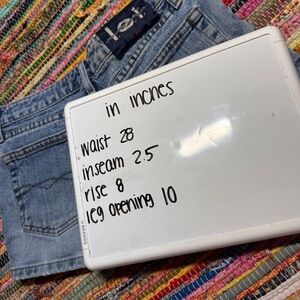 lei
in inches
waist 28
inseam 2.5
rise 8
leg opening 10